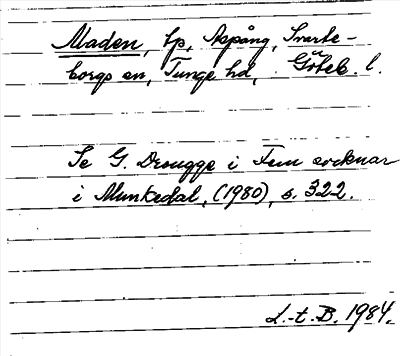 Maden, tp, Aspång, Svarte-
borgs sn, Tunge hd, Göteb. l.
Se G. Drougge i Fem socknar
i Munkedal, (1980), s. 322.
L.t.B. 1984.